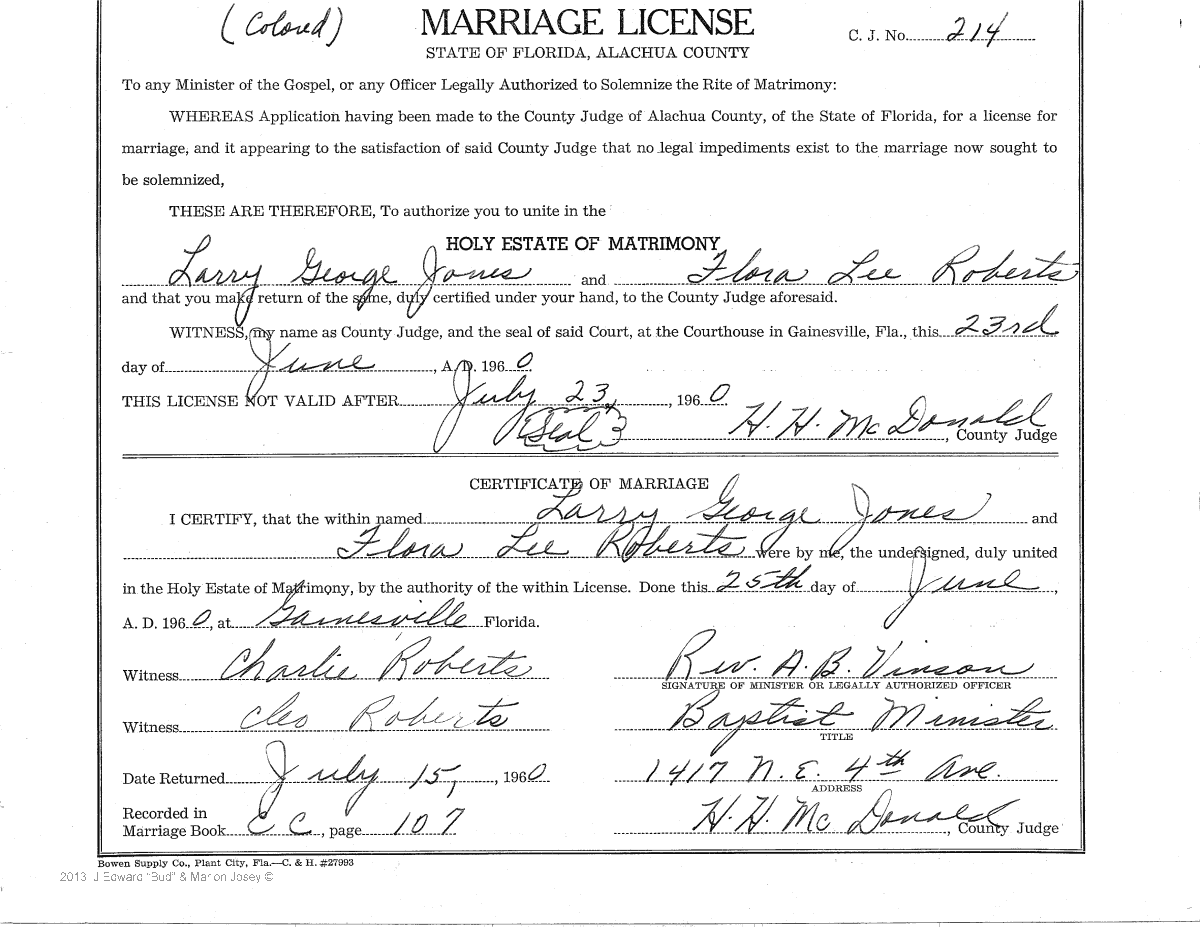 (Colored)
MARRIAGE LICENSE
C. J. No. 214
STATE OF FLORIDA, ALACHUA COUNTY
To any Minister of the Gospel, or any Officer Legally Authorized to Solemnize the Rite of Matrimony:
WHEREAS Application having been made to the County Judge of Alachua County, of the State of Florida, for a license for
marriage, and it appearing to the satisfaction of said County Judge that no legal impediments exist to the marriage now sought to
be solemnized,
THESE ARE THEREFORE, To authorize you to unite in the
HOLY ESTATE OF MATRIMONY
Larry George Jones and Flora Lee Roberts
and that you make return of the same, duly certified under your hand, to the County Judge aforesaid.
WITNESS, my name as County Judge, and the seal of said Court, at the Courthouse in Gainesville, Fla., this 23rd
day of June, A. D. 1960
THIS LICENSE NOT VALID AFTER July 23, 1960
Seal H. H. McDonald, County Judge
CERTIFICATE OF MARRIAGE
I CERTIFY, that the within named Larry George Jones and
Flora Lee Roberts were by me, the undersigned, duly united
in the Holy Estate of Matrimony, by the authority of the within License. Done this 25th day of June,
A. D. 1960, at Gainesville Florida.
Witness Charlie Roberts Rev. A. B. Vinson
SIGNATURE OF MINISTER OR LEGALLY AUTHORIZED OFFICER
Witness Cleo Roberts Baptist Minister
TITLE
Date Returned July 15, 1960 1417 N. E. 4th Ave.
ADDRESS
Recorded in
Marriage Book CC, page 107 H. H. McDonald, County Judge
Bowen Supply Co., Plant City, Fla.—C. & H. #27993
2013 J Edward "Bud" & Marion Josey ©